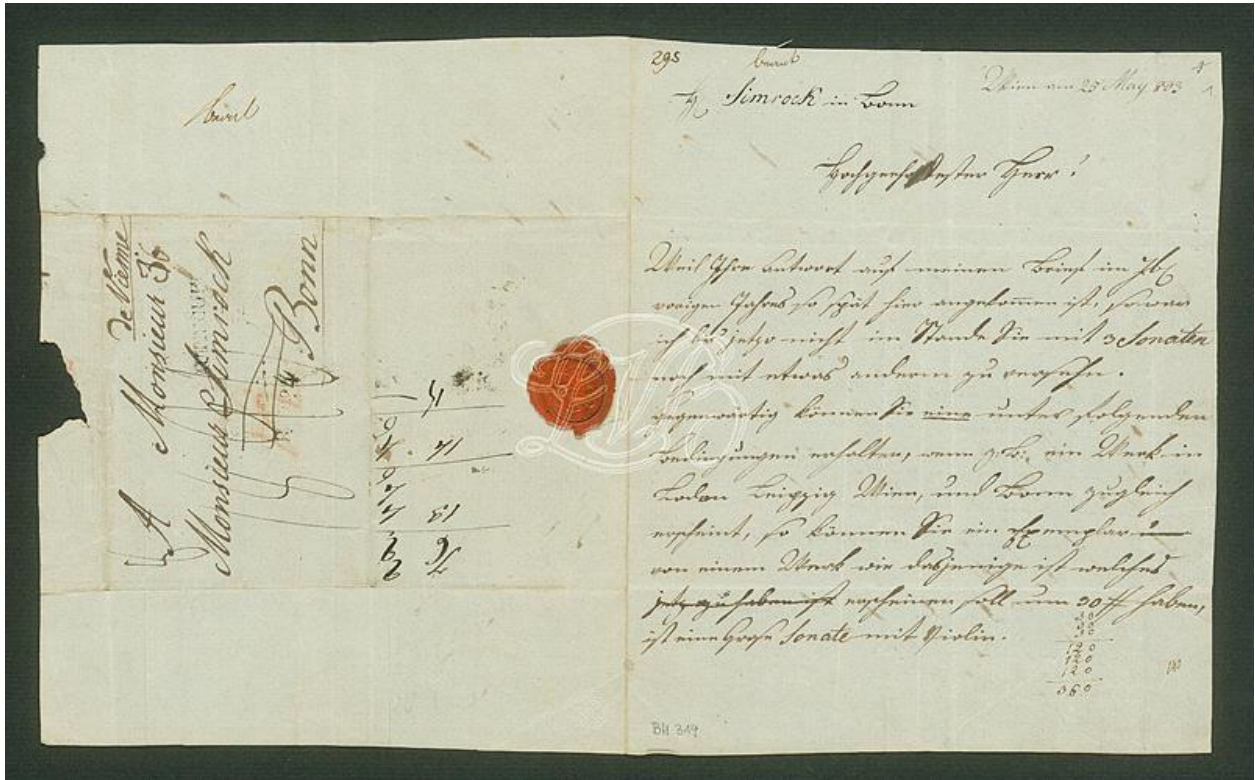 bnel
de Vienne
A Monsieur
Monsieur Simrock
Bonn
295
H. Simrock in Bonn
Wien am 25 May 803
Hochgeschäzter Herr!
Weil Ihre Antwort auf meinen Brief im
vorigen Jahres so spät hier angekommen ist, so war
ich bis jetzo nicht im Stande Sie mit 3 Sonaten
noch mit etwas anderm zu versehn.
gegenwärtig können Sie eine unter folgenden
Bedingungen erhalten, wenn z.B: ein Werk in
Leipzig Wien, und Bonn zugleich
erscheint, so können Sie ein Exemplar
von einem Werk wie dasjenige ist welches
jetz zu haben ist erscheinen soll um 30 # haben,
ist eine große Sonate mit Violin.
120
120
120
360
BH 319